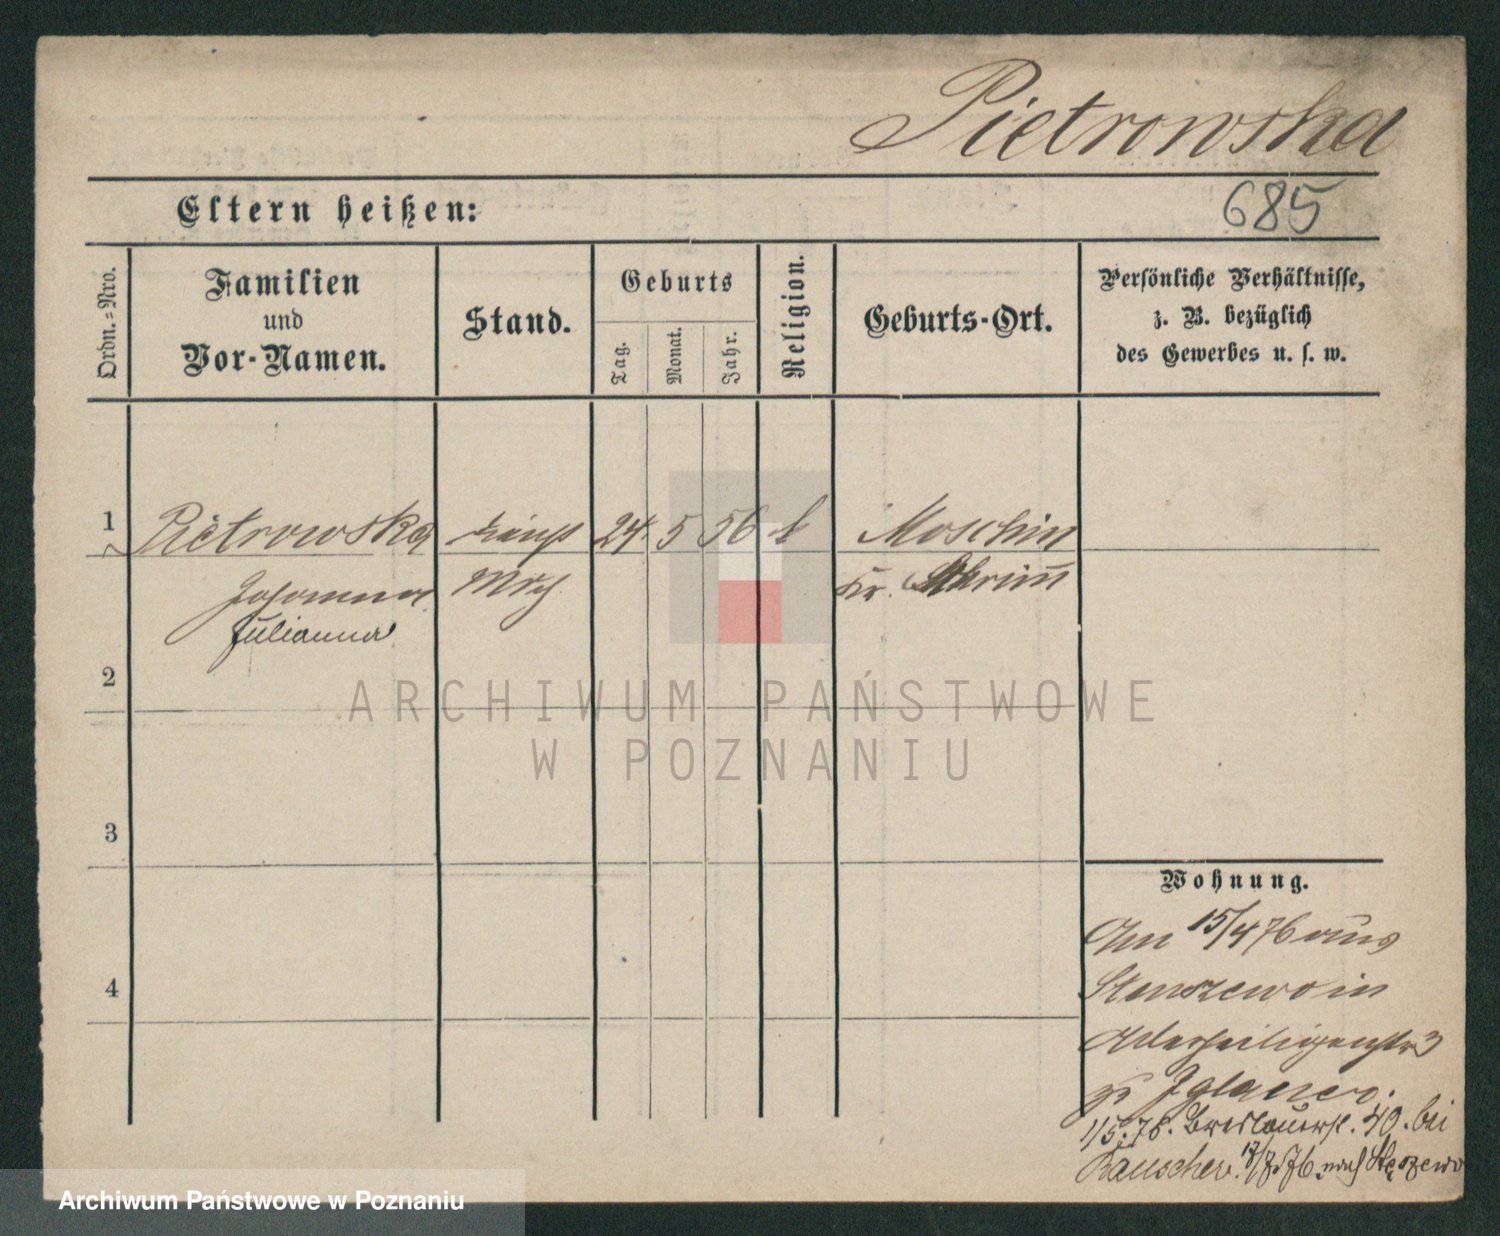 Pietrowska
685
Eltern heißen:
Ordn.-Nro.
Familien
und
Vor-Namen.
Stand.
Geburts
Tag.
Monat.
Jahr.
Religion.
Geburts-Ort.
Persönliche Verhältnisse,
z. B. bezüglich
des Gewerbes u. s. w.
1 Pietrowska 24. 5 56 k Moschin
Johanna Kr. Schrimm
Julianna
2
3
4
ARCHIWUM PAŃSTWOWE
W POZNANIU
Wohnung.
Am 15/4 76 aus
Stenszewo in
Allerheiligenstr 3
1/5. 76. Breslauerst. 40. bei
Rauscher. 76. nach Stęszewo
Archiwum Państwowe w Poznaniu